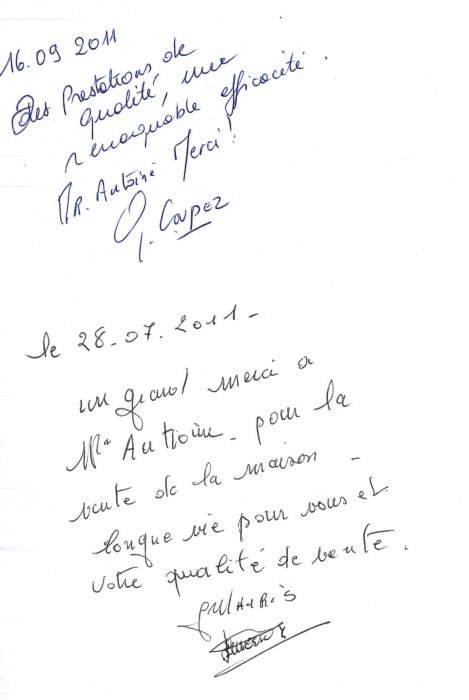 16.09 2011
Des Prestations de
qualité, une
remarquable efficacité.
MR. Antoine Merci!
Coupez
le 28.07.2011-
un grand merci a
Mr Antoine - pour la
vente de la maison -
longue vie pour vous et
votre qualité de vente.